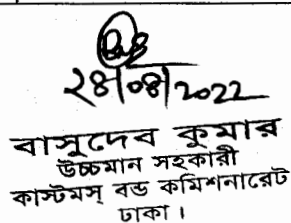 ২৪/০৪/2022
বাসুদেব কুমার
উচ্চমান সহকারী
কাস্টমস্ বন্ড কমিশনারেট
ঢাকা।